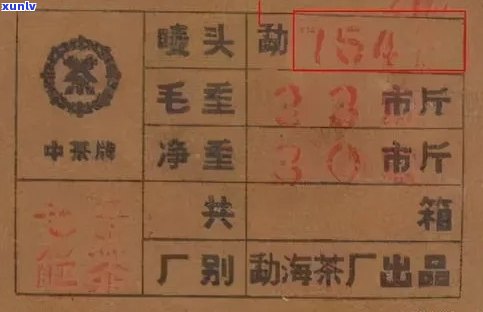 xuniv
唛头 勐 154
毛重 33 市斤
中茶牌 净重 30 市斤
七子 共 箱
饼茶 厂别 勐海茶厂出品